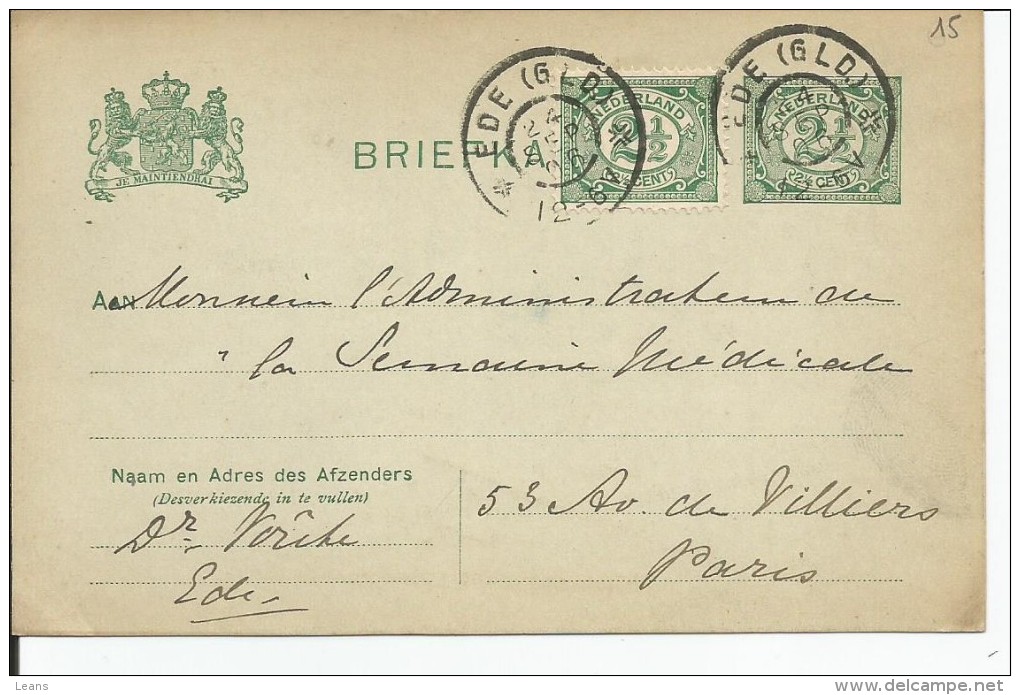 15
JE MAINTIENDRAI
BRIEFKA
EDE (GLD)
12-6A
NEDERLAND
2½
2½ CENT
EDE (GLD)
NEDERLAND
2½
2½ CENT
AAN Monsieur l'Administrateur de
" la Semaine Médicale
Naam en Adres des Afzenders
(Desverkiezende in te vullen)
53 Av. de Villiers
Dr.
Paris
Ede
Leans
http://www.delcampe.net